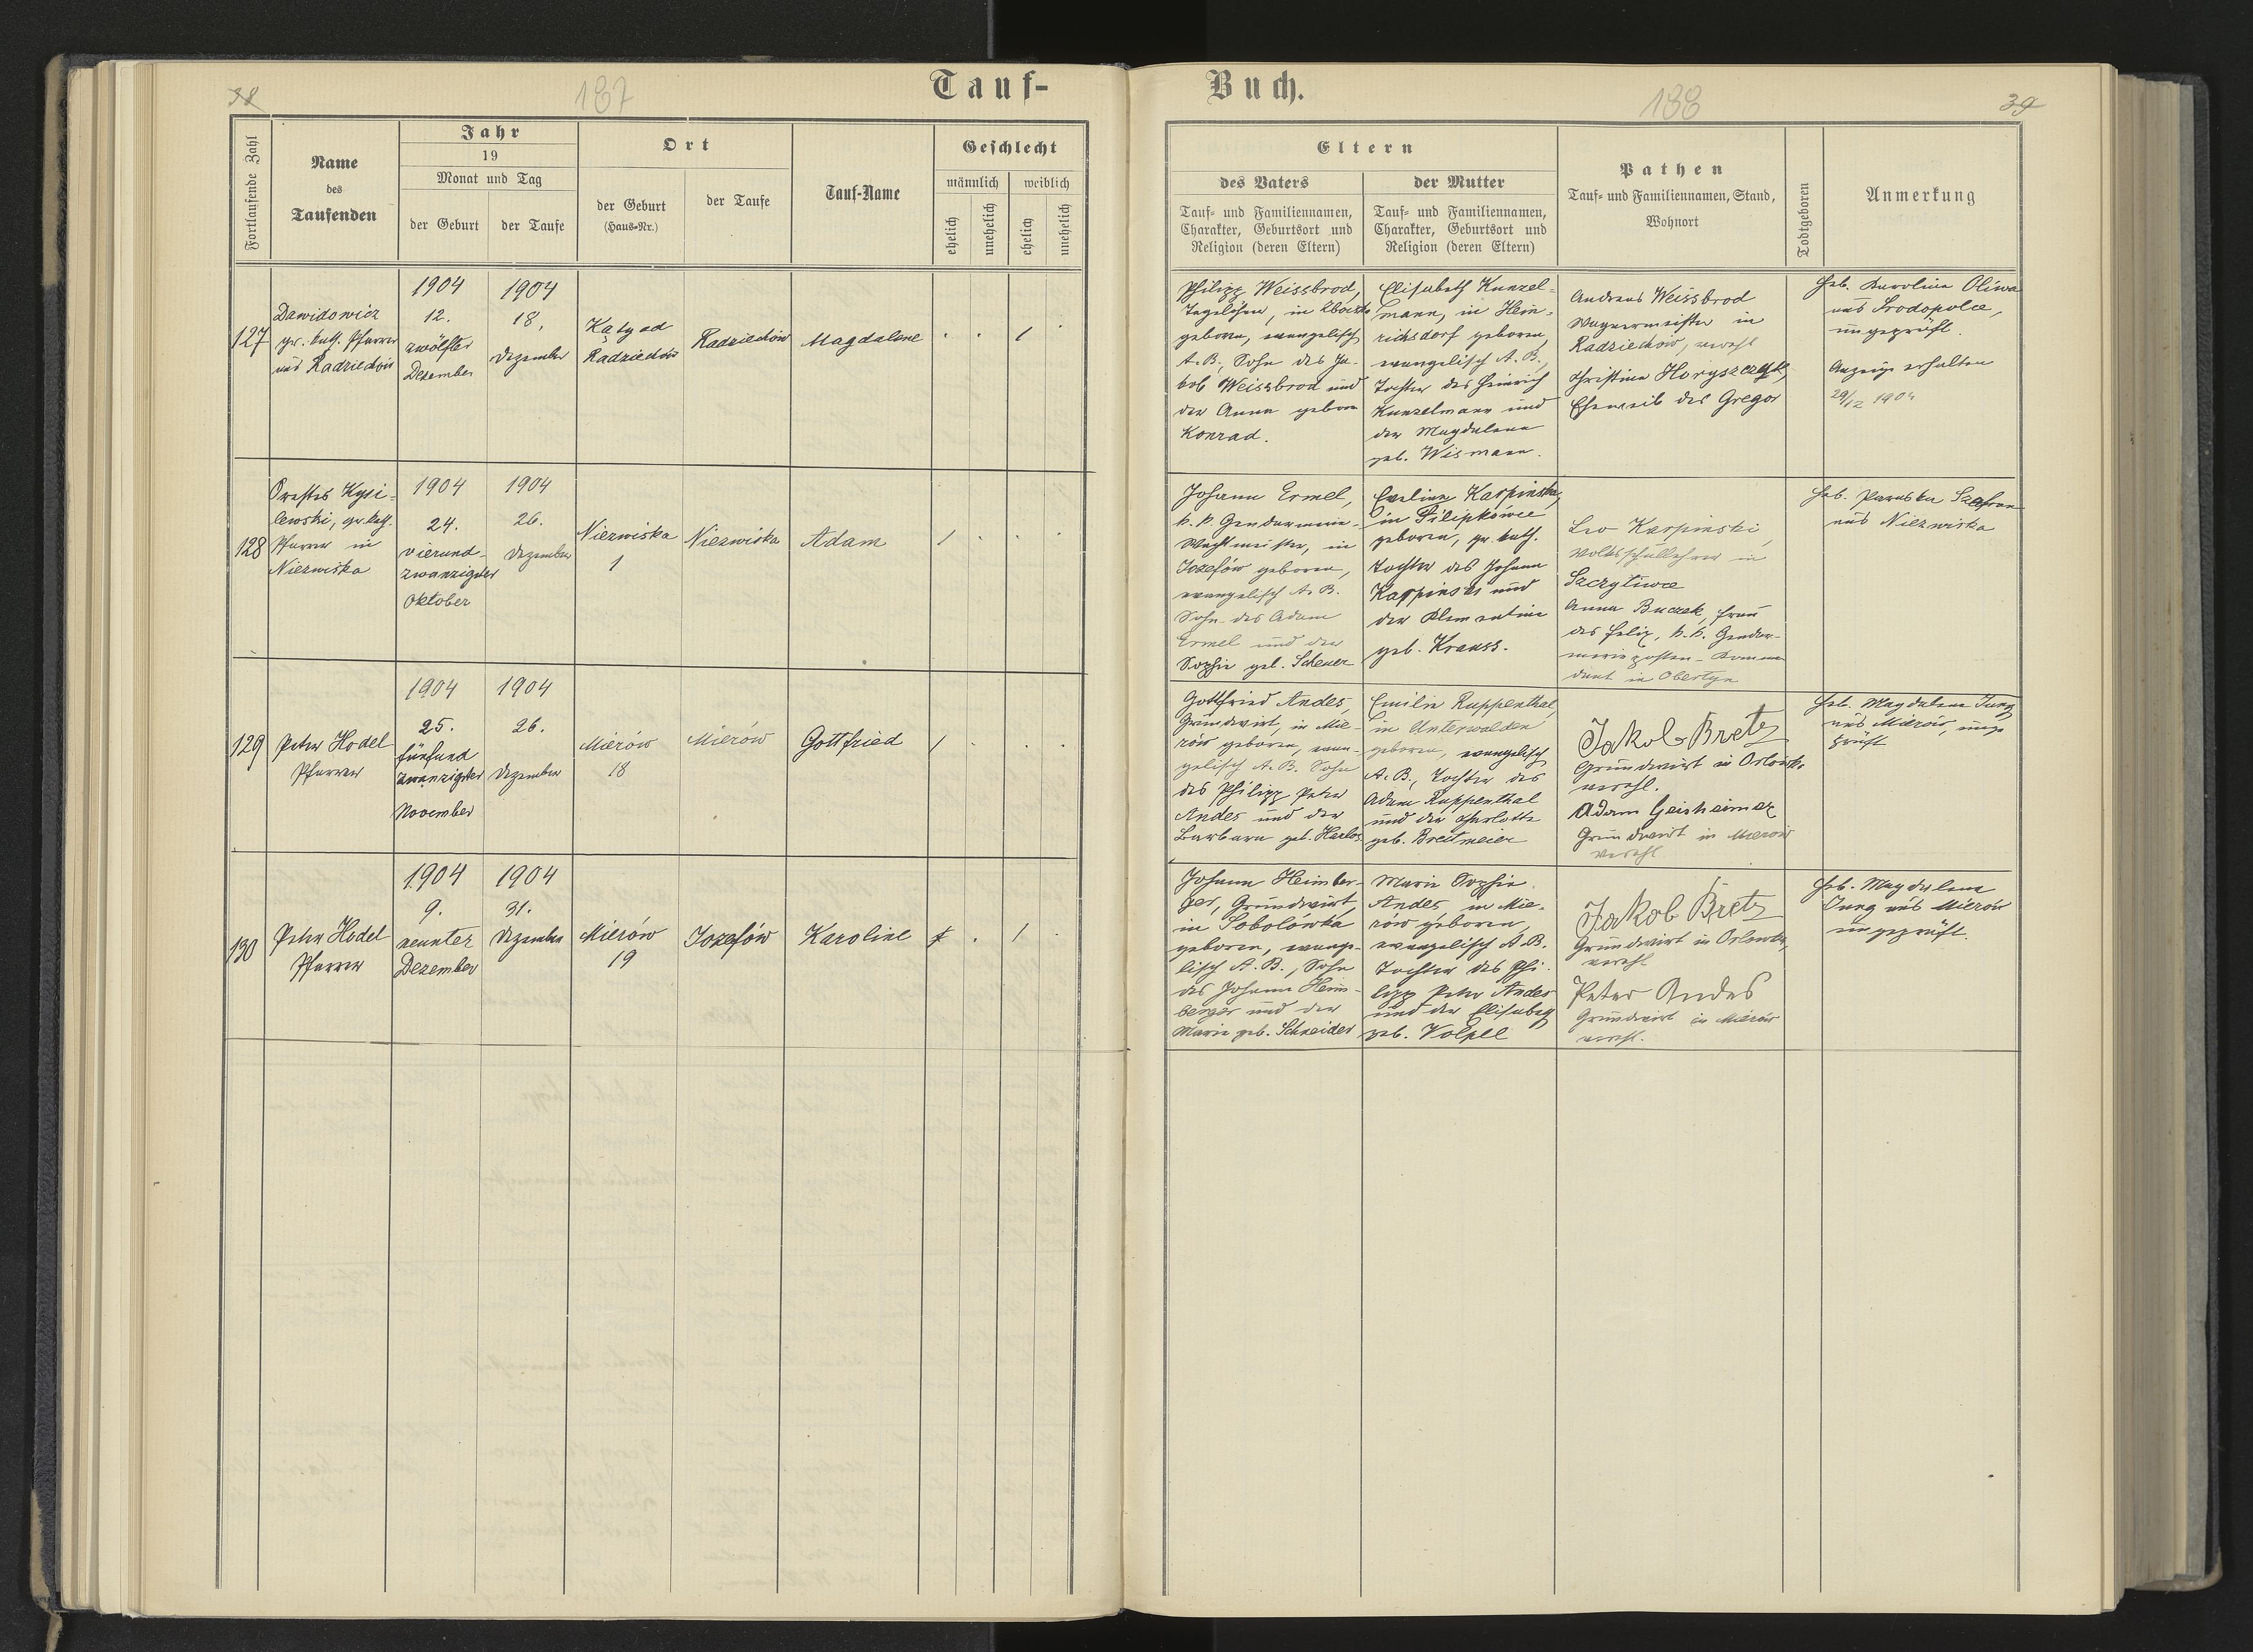 38
187
Tauf-
Fortlaufende Zahl
Name
des
Taufenden
Jahr
19
Monat und Tag
der Geburt
der Taufe
Ort
der Geburt
(Haus-Nr.)
der Taufe
Tauf-Name
Geschlecht
männlich
weiblich
ehelich
unehelich
ehelich
unehelich
127
Dawidowicz
gr. kath. Pfarrer
aus Radziechów
1904
12.
zwölfter
Dezember
1904
18.
Dezember
Radziechów
Radziechów
Magdalene
1
128
Orestes Kysi-
lewski, gr. kath.
Pfarrer in
Niezwiska
1904
24.
vierund-
zwanzigster
Oktober
1904
26.
Dezember
Niezwiska
1
Niezwiska
Adam
1
129
Peter Hodel
Pfarrer
1904
25.
fünfund
zwanzigster
November
1904
26.
Dezember
Mierów
18
Mierów
Gottfried
1
130
Peter Hodel
Pfarrer
1904
9.
neunter
Dezember
1904
31.
Dezember
Mierów
19
Jozefów
Karoline
1
Buch.
188
39
Eltern
des Vaters
Tauf- und Familiennamen,
Charakter, Geburtsort und
Religion (deren Eltern)
der Mutter
Tauf- und Familiennamen,
Charakter, Geburtsort und
Religion (deren Eltern)
Pathen
Tauf- und Familiennamen, Stand,
Wohnort
Todtgeboren
Anmerkung
Philipp Weissbrod,
Tagelöhner, in
geboren, evangelisch
A. B., Sohn des Ja-
kob Weissbrod und
der Anna geborn
Konrad.
Elisabeth Kunzel-
mann, in Hein-
richsdorf geboren,
evangelisch A. B.,
Tochter des Heinrich
Kunzelmann und
der Magdalena
geb. Wismann.
Andreas Weissbrod
Wagnermeister in
Radziechów, verehl
Christine Horyszczyk,
Eheweib des Gregor
Heb. Karolina Oliwa
aus Srodopolce,
ungeprüft.
Anzeige erhalten
29/12 1904
Johann Ermel,
k. k. Gendarmerie-
Wachtmeister, in
Jozefów geboren,
evangelisch A. B.
Sohn des Adam
Ermel und der
Sophie geb. Scheuer
Eveline Karpinska,
in Filipkowce
geboren, gr. kath.
Tochter des Johann
Karpinski und
der Klementine
geb. Krauss.
Leo Karpinski,
Volksschullehrer in
Szczytowce
Anna Buczek, Frau
des Felix, k. k. Gendar-
merieposten-Komman
dant in Obertyn
Heb. Paraska Szafran
aus Niezwiska
Gottfried Andes,
Grundwirt, in Mie-
rów geboren, evan-
gelisch A. B. Sohn
des Philipp Peter
Andes und der
Barbara geb. Herlos
Emilie Ruppenthal,
in Unterwalden
geboren, evangelisch
A. B., Tochter des
Adam Ruppenthal
und der Charlotte
geb. Breitmeier
Jakob Bretz
Grundwirt in
verehl.
Adam Geisheimer
Grundwirt in Mierów
verehl
Heb. Magdalena Jung
aus Mierów, unge
prüft
Johann Heimber-
ger, Grundwirt,
in Sobolówka
geboren, evange-
lisch A. B., Sohn
des Johann Heim-
berger und der
Marie geb. Schneider
Marie Sophie
Andes, in Mie-
rów geboren,
evangelisch A. B.
Tochter des Phi-
lipp Peter Andes
und der Elisabeth
geb. Volpel
Jakob Bretz
Grundwirt in
verehl
Peter Andes
Grundwirt in Mierów
verehl.
Heb. Magdalena
Jung aus Mierów
ungeprüft.